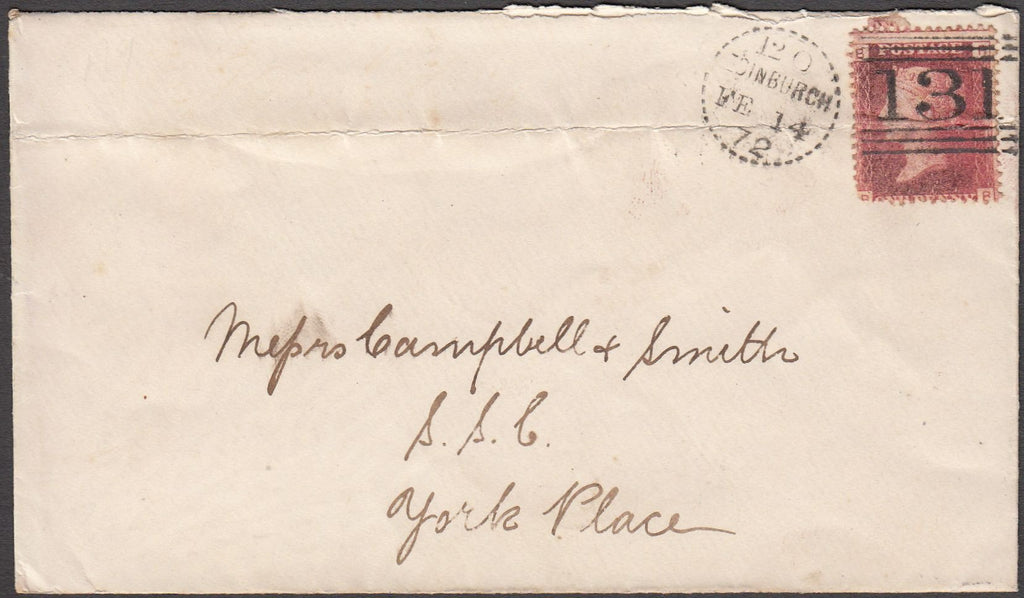 120
EDINBURGH
FE 14
72
B POSTAGE
131
B
Messrs Campbell & Smith
S. S. C.
York Place